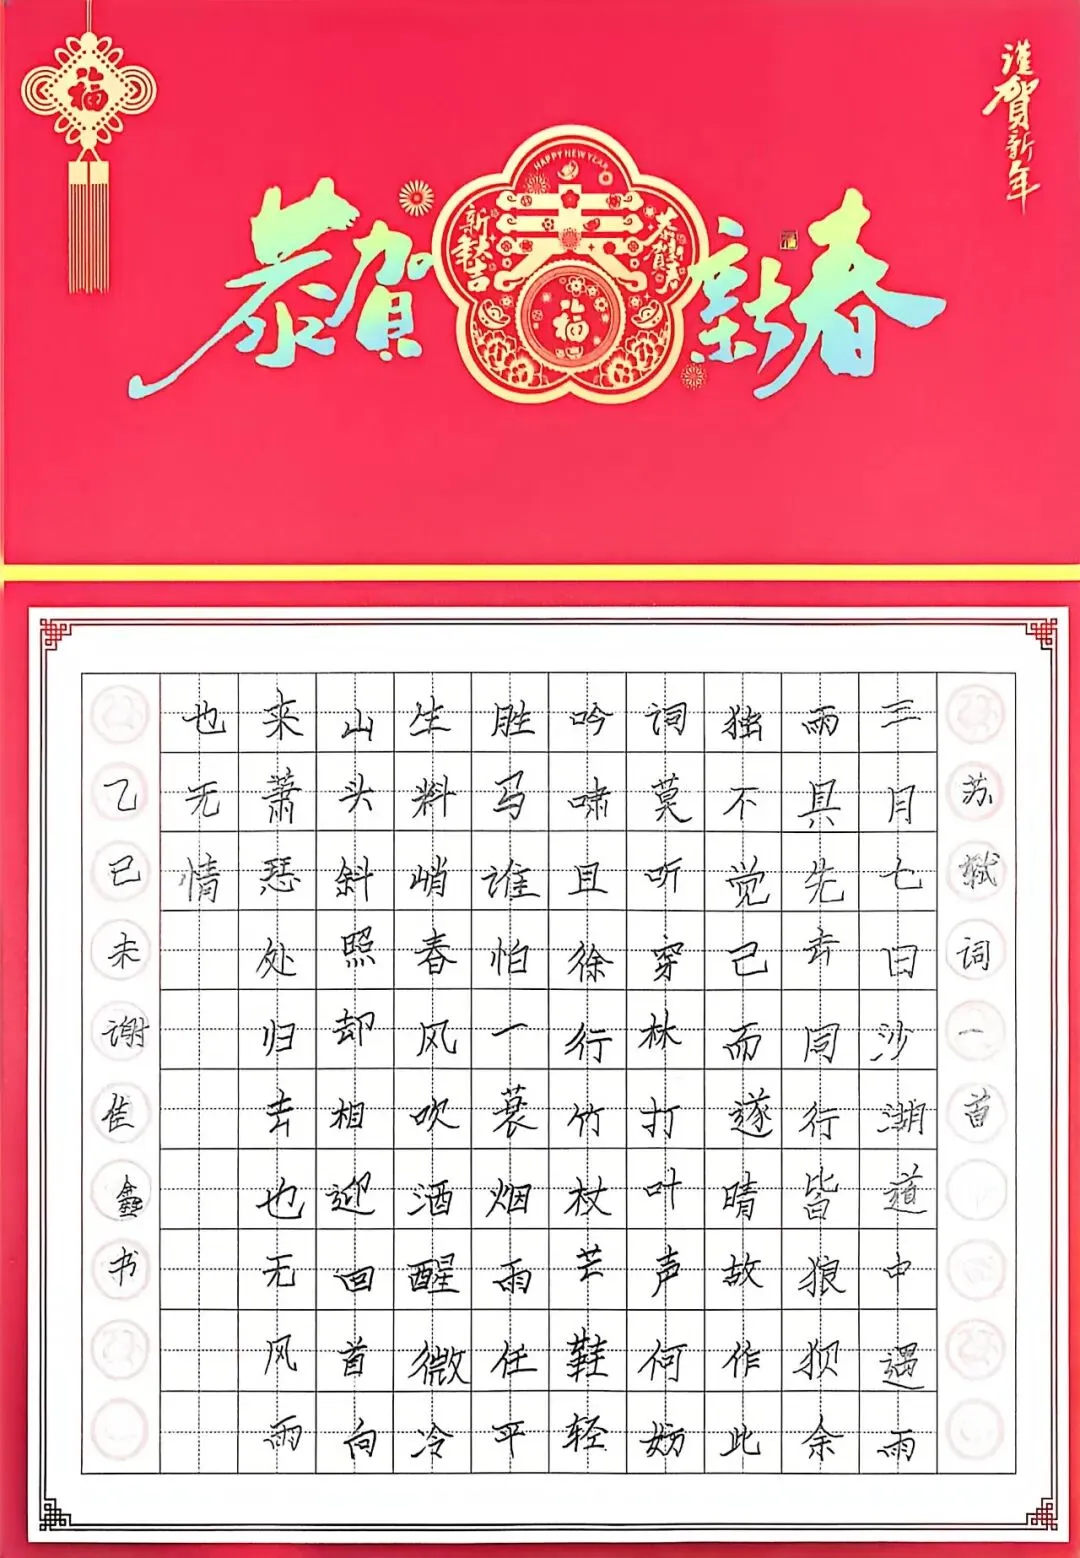 福
謹賀新年
恭賀
新春
福
HAPPY NEW YEAR
新年大吉
春
恭賀新春
福
苏轼词一首
三月七日沙湖道中遇雨
雨具先去同行皆狼狈余
独不觉已而遂晴故作此
词莫听穿林打叶声何妨
吟啸且徐行竹杖芒鞋轻
胜马谁怕一蓑烟雨任平
生料峭春风吹酒醒微冷
山头斜照却相迎回首向
来萧瑟处归去也无风雨
也无情
乙巳末谢佳鑫书